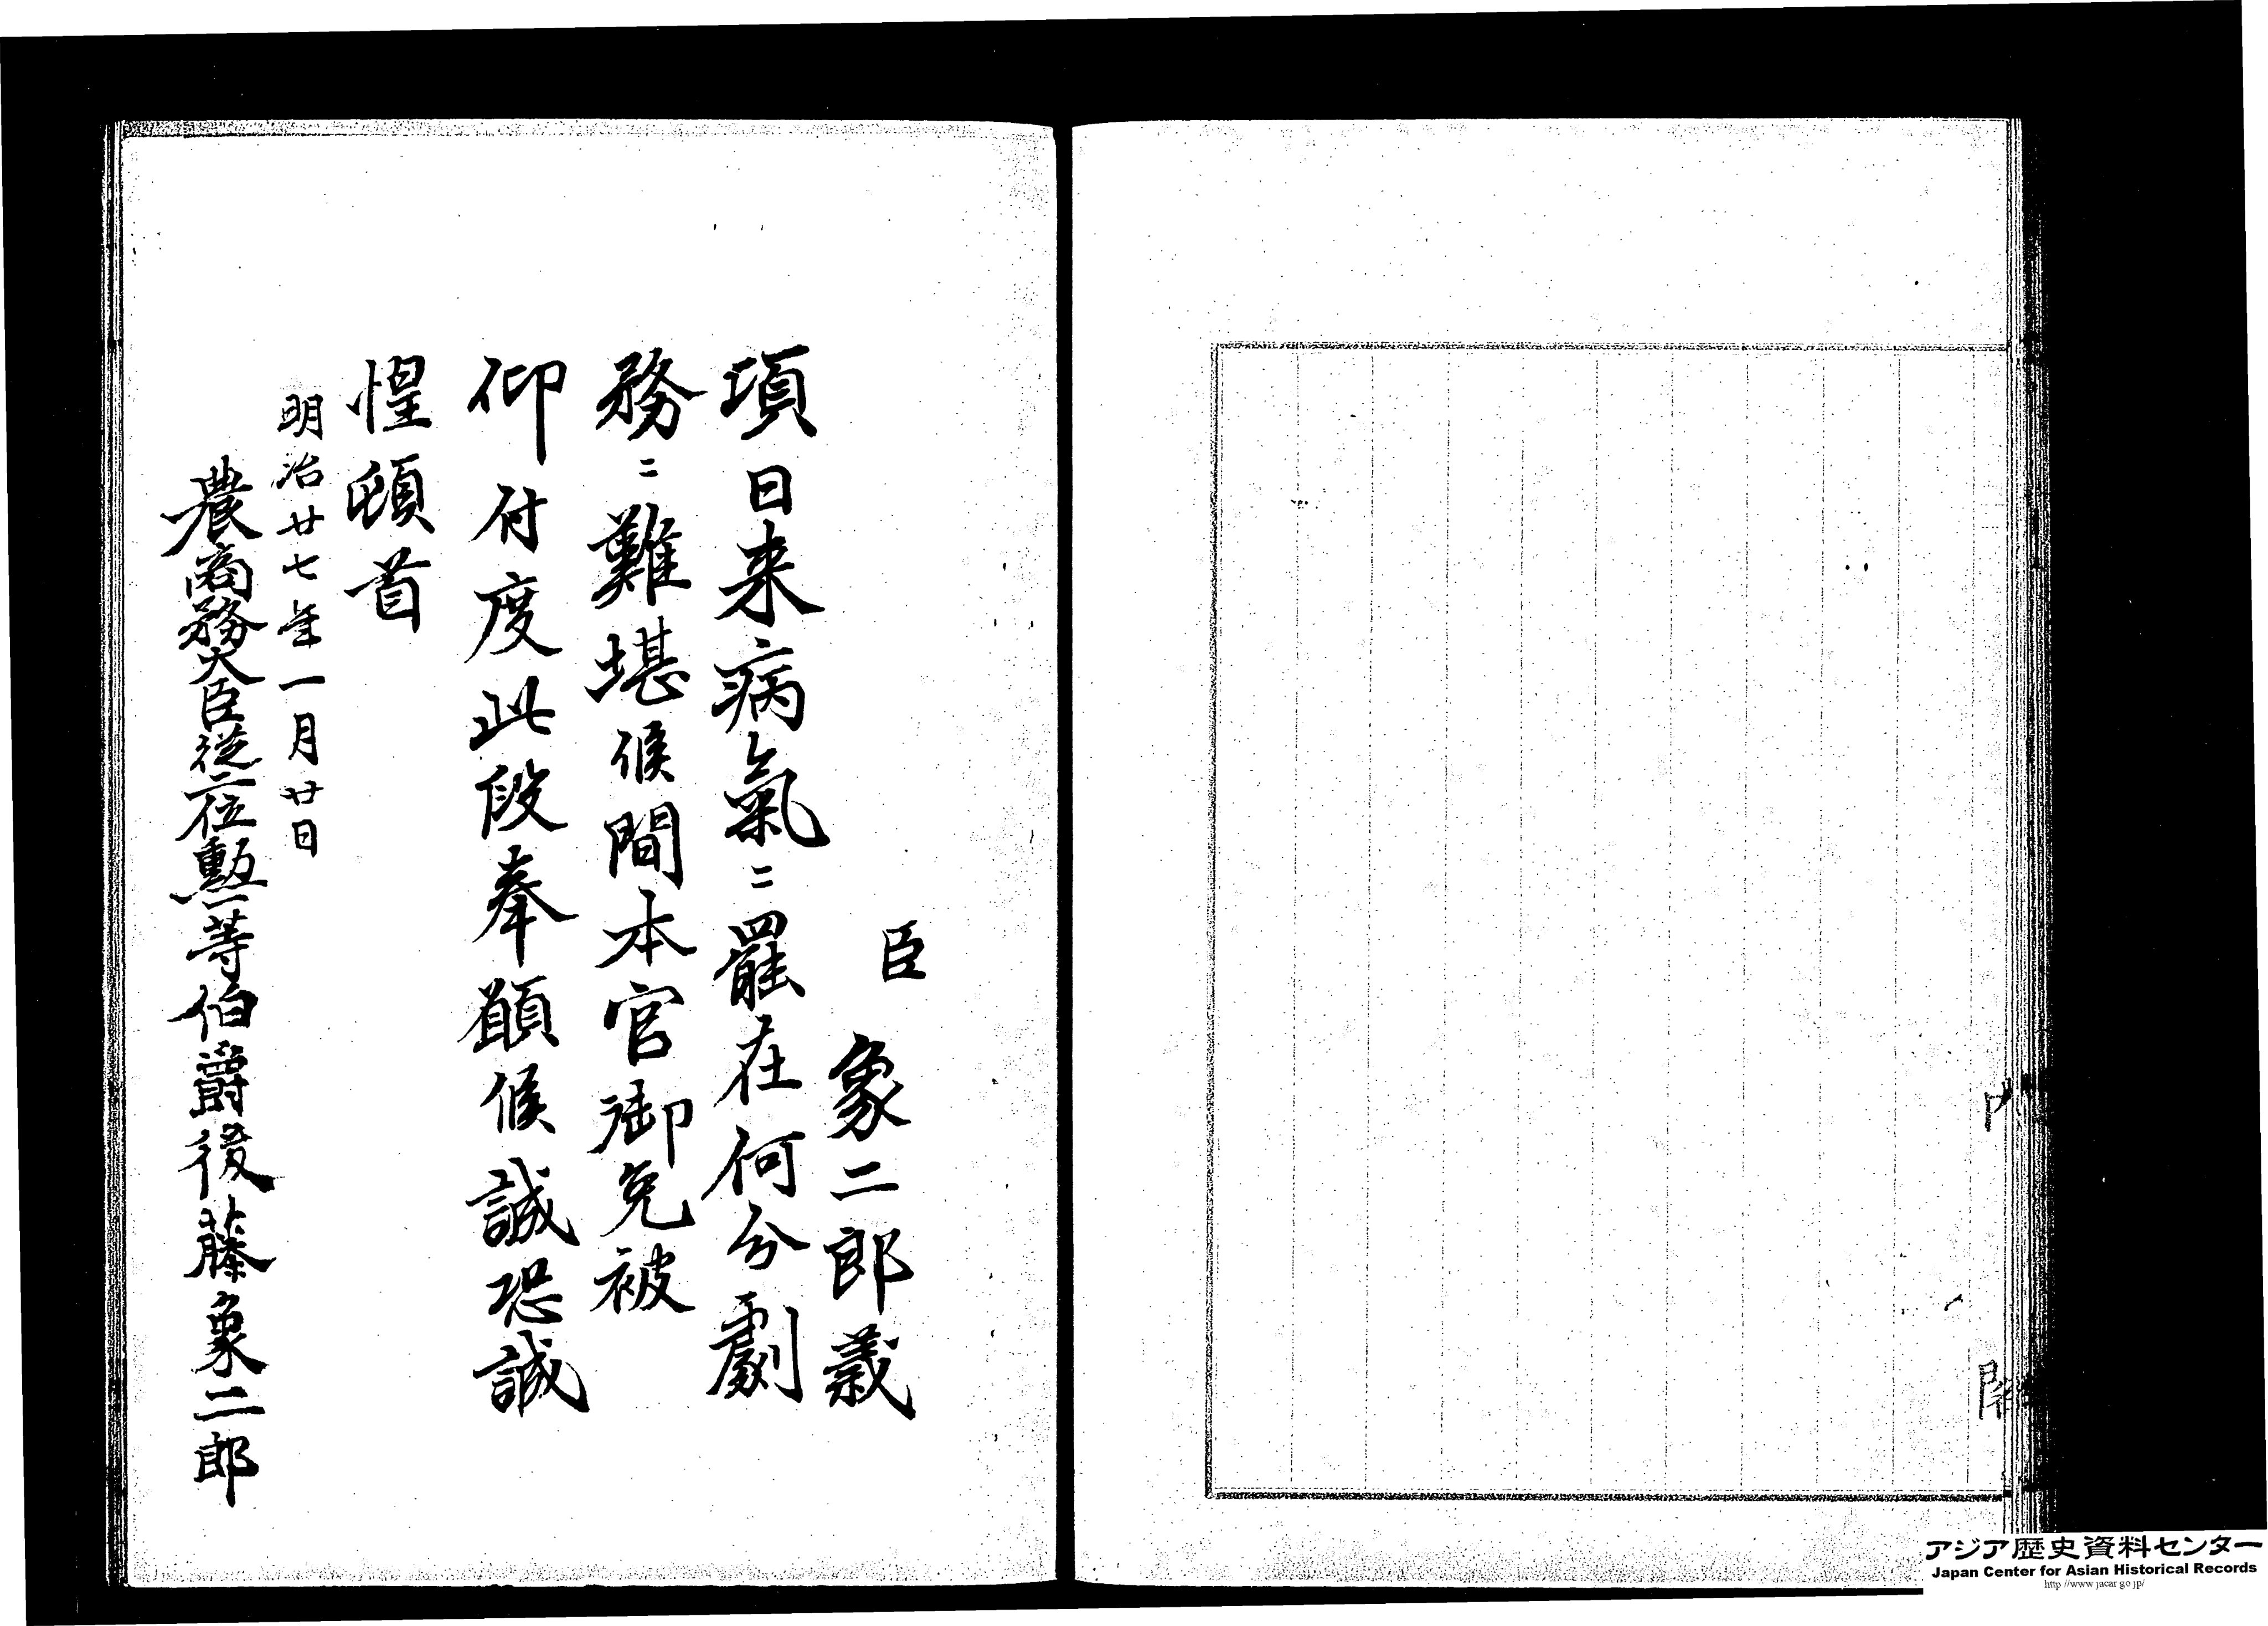 内
閣
臣
象二郎義
項日来病氣ニ罷在何分劇
務ニ難堪候間本官御免被
仰付度此段奉願候誠恐誠
惶頓首
明治廿七年一月廿日
農商務大臣従二位勲一等伯爵後藤象二郎
アジア歴史資料センター
Japan Center for Asian Historical Records
http://www.jacar.go.jp/